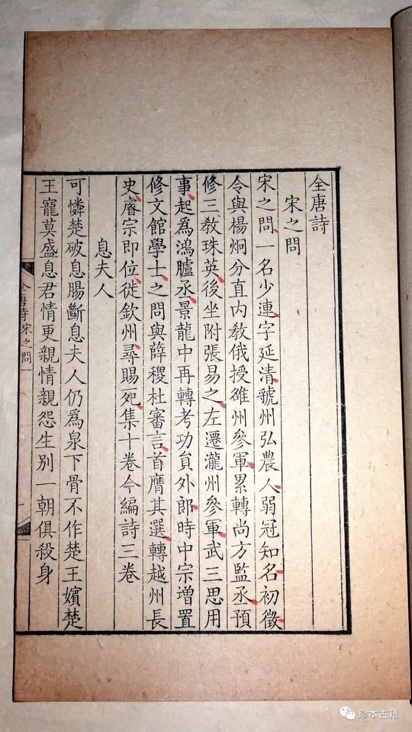 全唐詩
宋之問
宋之問一名少連字延清虢州弘農人弱冠知名初徵
令與楊炯分直内敎俄授雒州參軍累轉尚方監丞預
修三敎珠英後坐附張易之左遷瀧州參軍武三思用
事起爲鴻臚丞景龍中再轉考功員外郎時中宗增置
修文館學士之問與薛稷杜審言首膺其選轉越州長
史睿宗即位徙欽州尋賜死集十卷今編詩三卷
息夫人
可憐楚破息腸斷息夫人仍爲泉下骨不作楚王嬪楚
王寵莫盛息君情更親情親怨生別一朝俱殺身
全唐詩宋之問
一
珍本古籍